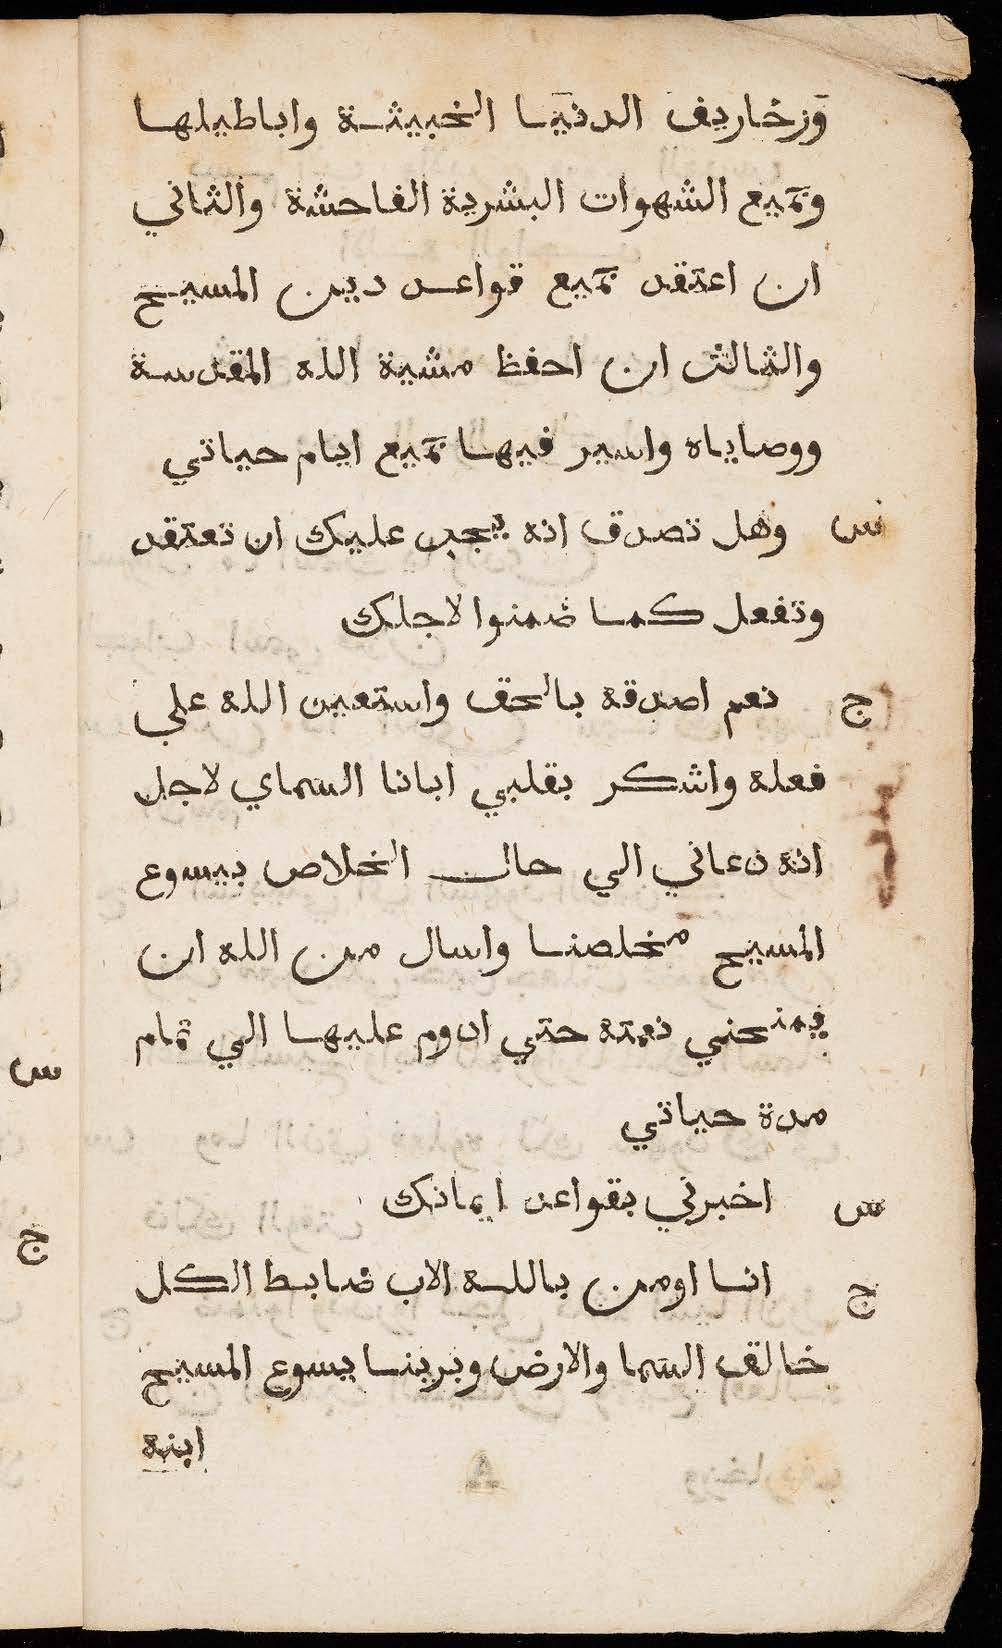 وزخاريف الدنيا الخبيثة واباطيلها
وجميع الشهوات البشرية الفاحشة والثاني
ان اعتقد جميع قواعد دين المسيح
والثالث ان احفظ مشية الله المقدسة
ووصاياه واسير فيها جميع ايام حياتي
س وهل تصدق انه يجب عليك ان تعتقد
وتفعل كما ضمنوا لاجلك
ج نعم اصدقه بالحق واستعين الله علي
فعله واشكر بقلبي ابانا السماي لاجل
انه دعاني الي حال الخلاص بيسوع
المسيح مخلصنا واسال من الله ان
يمنحني نعمته حتي ادوم عليها الي تمام
مدة حياتي
س اخبرني بقواعد ايمانك
ج انا اومن بالله الاب ضابط الكل
خالق السما والارض وبربنا يسوع المسيح
ابنه
س
ج